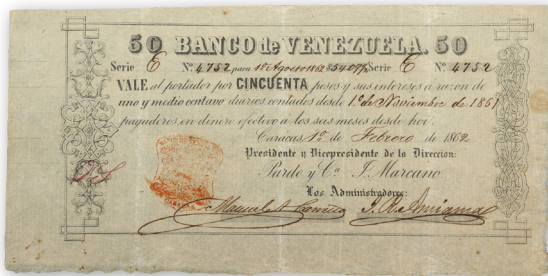 50 BANCO de VENEZUELA. 50
Serie C Nº 4752 para 1º Agosto 1862 Serie C Nº 4752
VALE al portador por CINCUENTA pesos y sus intereses a razon de
uno y medio centavo diarios contados desde 1º de Noviembre de 1861
pagaderos en dinero efectivo a los seis meses desde hoi.
Caracas 1º de Febrero de 1862
Presidente y Vicepresidente de la Direccion:
Pardo y Cª J. Marcano
Los Administradores: